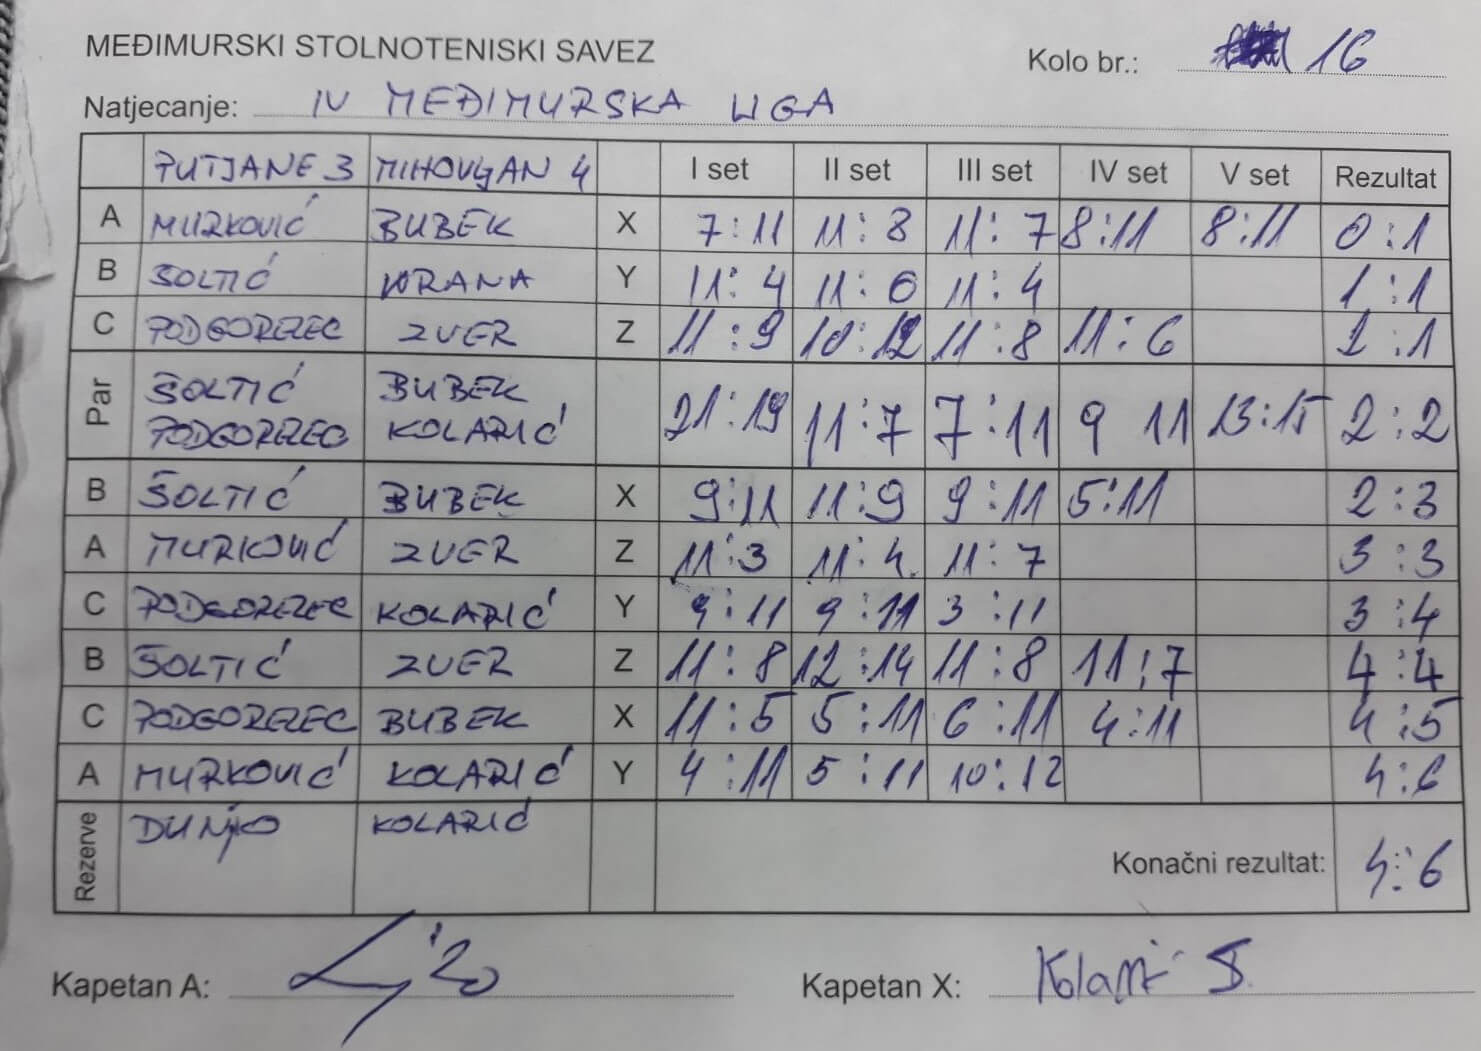 MEĐIMURSKI STOLNOTENISKI SAVEZ
Kolo br.: 16
Natjecanje: IV MEĐIMURSKA LIGA
PUTJANE 3 MIHOVLJAN 4 I set II set III set IV set V set Rezultat
A MURKOVIĆ BUBEK X 7:11 11:8 11:7 8:11 8:11 0:1
B ŠOLTIĆ VRANA Y 11:4 11:6 11:4 1:1
C PODGORELEC ZVER Z 11:9 10:12 11:8 11:6 2:1
Par ŠOLTIĆ BUBEK
PODGORELEC KOLARIĆ 21:19 11:7 7:11 9 11 13:15 2:2
B ŠOLTIĆ BUBEK X 9:11 11:9 9:11 5:11 2:3
A MURKOVIĆ ZVER Z 11:3 11:4 11:7 3:3
C PODGORELEC KOLARIĆ Y 9:11 9:11 3:11 3:4
B ŠOLTIĆ ZVER Z 11:8 12:14 11:8 11:7 4:4
C PODGORELEC BUBEK X 11:5 5:11 6:11 4:11 4:5
A MURKOVIĆ KOLARIĆ Y 4:11 5:11 10:12 4:6
Rezerve DUNJKO KOLARIĆ
Konačni rezultat: 4:6
Kapetan A: Kapetan X: Kolarić S.